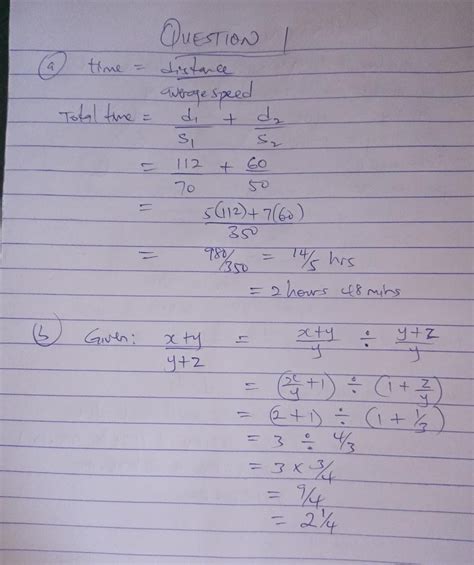 QUESTION 1
(a) time = distance / average speed
Total time = d1/S1 + d2/S2
= 112/70 + 60/50
= 5(112)+7(60) / 350
= 980/350 = 14/5 hrs
= 2 hours 48 mins
(b) Given: x+y / y+z = x+y / y ÷ y+z / y
= (x/y + 1) ÷ (1 + z/y)
= (2+1) ÷ (1 + 1/3)
= 3 ÷ 4/3
= 3 × 3/4
= 9/4
= 2 1/4